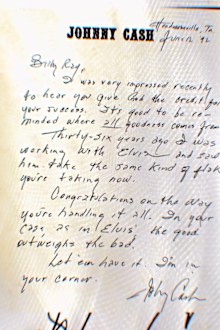 JOHNNY CASH
Hendersonville, Tn
June 92
Billy Ray,
I was very impressed recently
to hear you give God the credit for
your success. It's good to be re-
minded where all goodness comes from.
Thirty-six years ago I was
working with Elvis and saw
him take the same kind of flak
you're taking now.
Congratulations on the way
you're handling it all. In your
case, as in Elvis' the good
outweighs the bad.
Let 'em have it. I'm in
your corner.
Johnny Cash